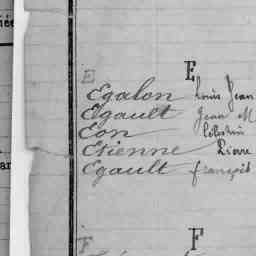 ée
E E
Egalon Louis Jean
Egault Jean M
Eon Célestin
Etienne Pierre
Egault françois
ar
F F